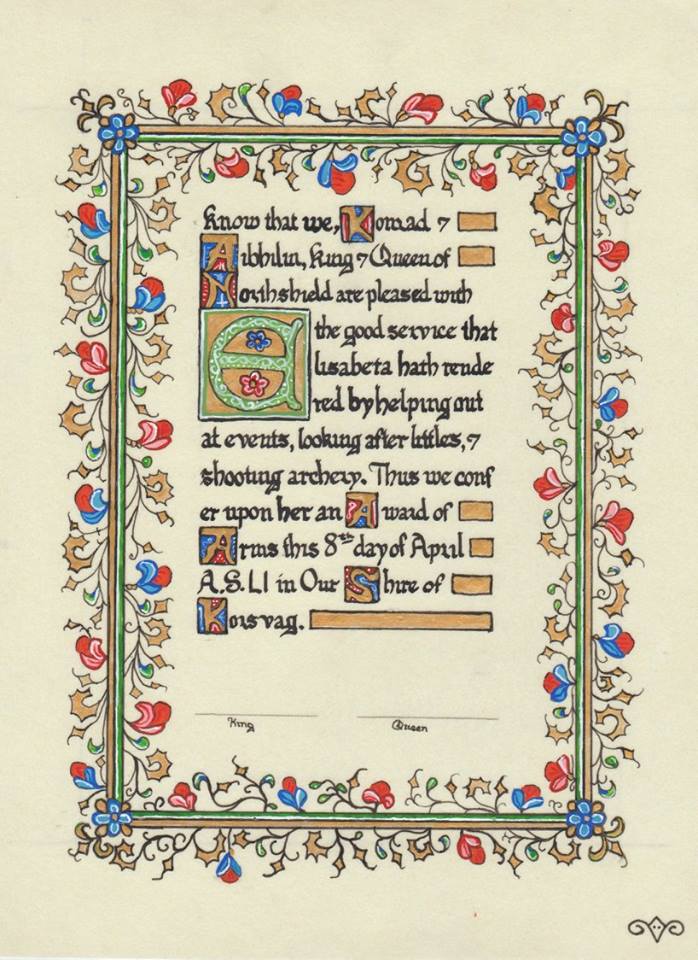 Know that we, Konrad ⁊
Aibhilin, King ⁊ Queen of
Northshield are pleased with
the good service that
Elisabeta hath rende
red by helping out
at events, looking after littles, ⁊
shooting archery. Thus we conf
er upon her an Award of
Arms this 8th day of April
A.S. LI in Our Shire of
Korsvag.
King Queen